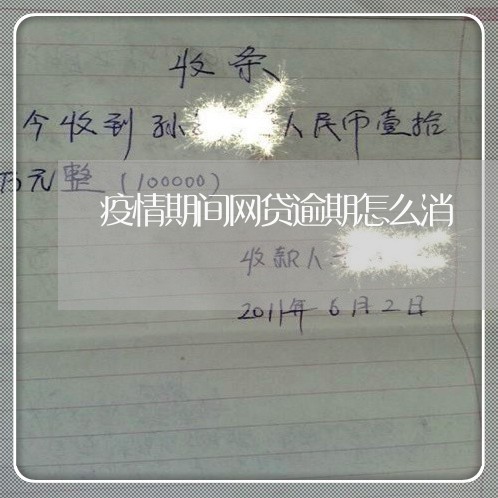 收条
今收到孙 人民币壹拾
万元整（100000）
疫情期间网贷逾期怎么消
收款人
2011年6月2日